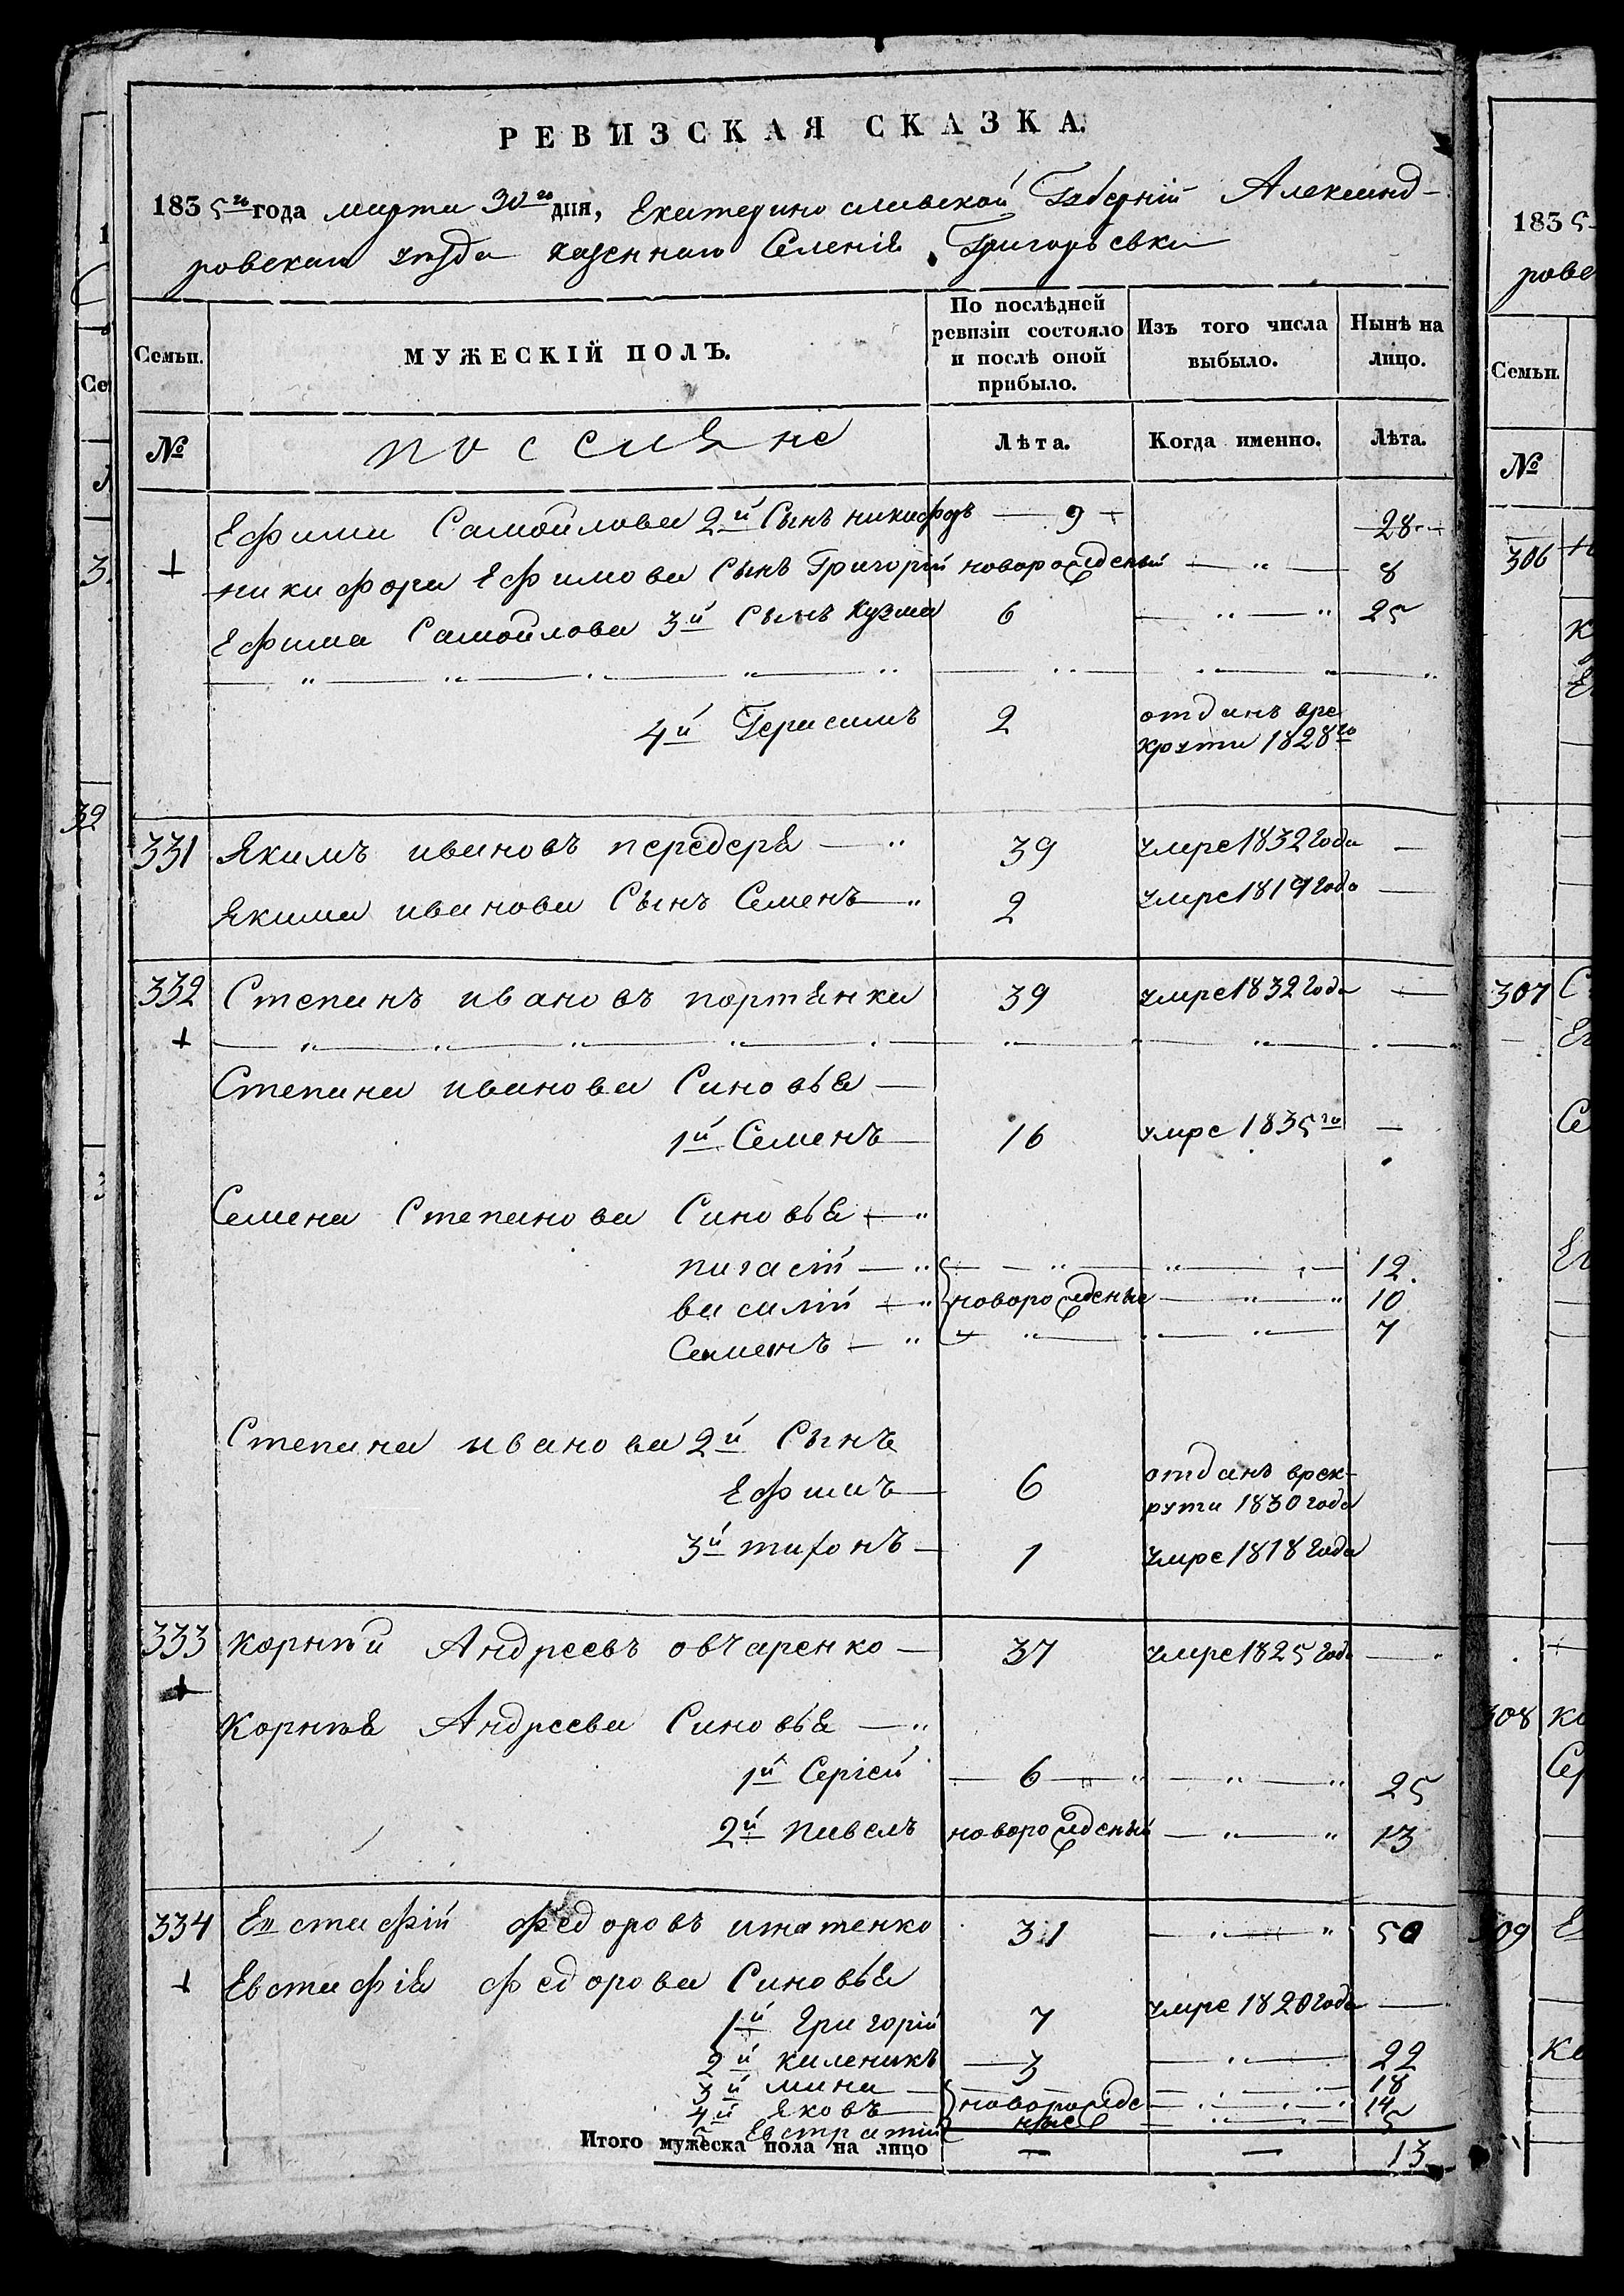 РЕВИЗСКАЯ СКАЗКА.
1835го года марта 30го дня, Екатеринославской Губернiи Александ-
ровскаго уезда казеннаго Селенiя Григорьевки
Семьи. МУЖЕСКIЙ ПОЛЪ. По послѣдней ревизiи состояло и послѣ оной прибыло. Изъ того числа выбыло. Нынѣ на лицо.
№ поселяне Лѣта. Когда именно. Лѣта.
Ефима Самойлова 2й Сынъ никифоръ 9 28
никифора Ефимова Сынъ Григорiй новорожденый 8
Ефима Самойлова 3й Сынъ Кузма 6 25
4й Герасимъ 2 отданъ вре
круты 1828го
331 Якимъ ивановъ передеря 39 умре 1832 года —
Якима иванова Сынъ Семенъ 2 умре 1819 года —
332 Степанъ ивановъ портянка 39 умре 1832 года —
Степана иванова Синовья
1й Семенъ 16 умре 1835го —
Семена Степанова Синовья
василiй новорожденые 10
Семенъ 7
12
Степана иванова 2й Сынъ
Ефимъ 6 отданъ врек-
руты 1830 года
3й тифонъ 1 умре 1818 года
333 корнѣй Андреевъ овчаренко 37 умре 1825 года —
Корнѣя Андреева Синовья
1й Сергiей 6 25
2й павелъ новорожденый 13
334 Евстафiй федоровъ 31 50
Евстафiя федорова Синовья
1й Григорiй 7 умре 1820 года —
2й каленикъ 3 22
3й мина новорожде 18
4й яковъ ные 14
5 Евстратiй 5
Итого мужеска пола на лицо — — 13
1835
рове
Семьи.
№
306
307
308
309